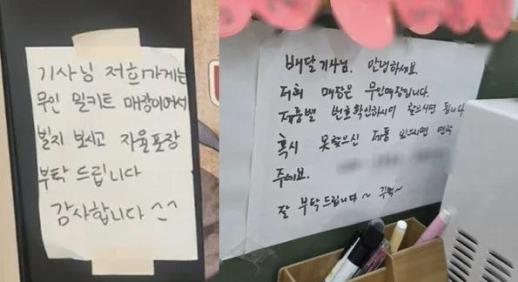 기사님 저희가게는
무인 밀키트 매장이어서
빌지 보시고 자율포장
부탁 드립니다
감사합니다 ^^
배달기사님. 안녕하세요.
저희 매장은 무인매장입니다.
제품별 번호확인하시며 찾으시면 됩니다
혹시 못찾으신 제품 있으시면 연락
주세요.
잘 부탁드립니다~ 꾸벅~